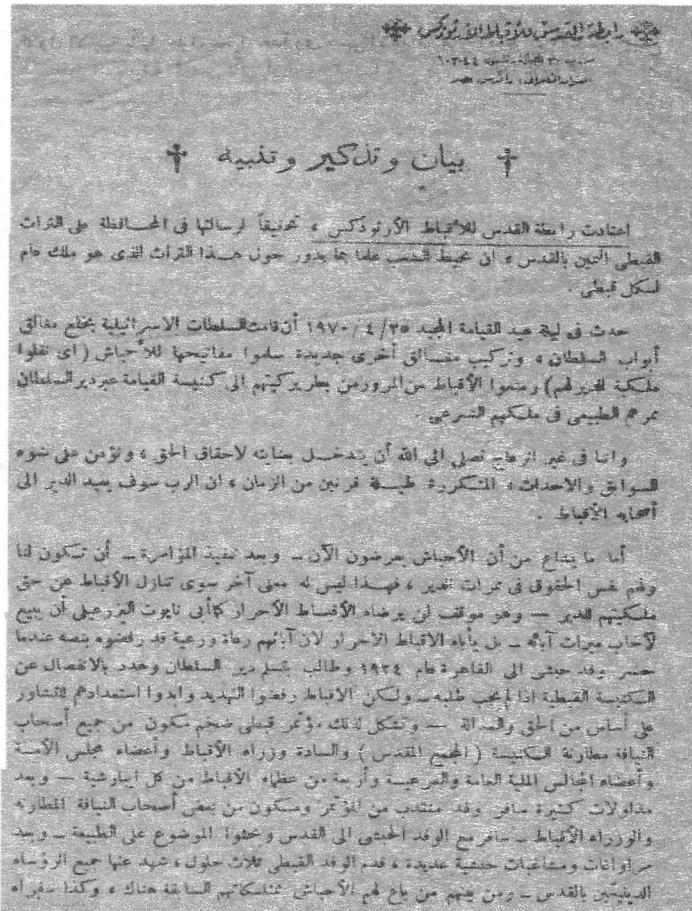 رابطة القدس للأقباط الأرثوذكس
بيان وتذكير وتنبيه
اعتادت رابطة القدس للأقباط الأرثوذكس ، تحقيقاً لرسالتها فى المحافظة على التراث
القبطى الثمين بالقدس ، ان تحيط الشعب علما بما يدور حول هذا التراث الذى هو ملك عام
لكل قبطى .
حدث فى ليلة عيد القيامة المجيد ٢٥ / ٤ / ١٩٧٠ أن قامت السلطات الاسرائيلية بخلع مغالق
أبواب السلطان ، وتركيب مغالق أخرى جديدة سلموا مفاتيحها للأحباش ( اى نقلوا
ملكية الدير لهم ) ومنعوا الأقباط من المرور من بطريركيتهم الى كنيسة القيامة عبر دير السلطان
ممرهم الطبيعى فى ملكهم الشرعى .
واننا فى غير انزعاج نصلى الى الله أن يتدخل بعنايته لاحقاق الحق ، ونؤمن على ضوء
السوابق والاحداث ، المتكررة طيلة قرنين من الزمان ، ان الرب سوف يعيد الدير الى
أصحابه الأقباط .
أما ما يشاع من أن الأحباش يعرضون الآن ــ وبعد تنفيذ المؤامرة ــ أن تكون لنا
ولهم نفس الحقوق فى ممرات الدير ، فهذا ليس له معنى آخر سوى تنازل الأقباط عن حق
ملكيتهم للدير ــ وهو موقف لن يرضاه الأقباط الأحرار كما أبى نابوت اليزرعيلى أن يبيع
لآخاب ميراث آبائه ــ بل يأباه الاقباط الاحرار لان آبائهم رعاة ورعية قد رفضوه بنصه عندما
حضر وفد حبشى الى القاهرة عام ١٩٢٤ وطالب بتسلم دير السلطان وهدد بالانفصال عن
الكنيسة القبطية اذا لم يجب طلبه ــ ولكن الاقباط رفضوا التهديد وابدوا استعدادهم للتشاور
على أساس من الحق والعدالة ــ وتشكل لذلك مؤتمر قبطى ضخم مكون من جميع أصحاب
النيافة مطارنة الكنيسة ( المجمع المقدس ) والسادة وزراء الأقباط وأعضاء مجلس الأمة
وأعضاء المجالس الملية العامة والفرعية وأربعة من عظماء الأقباط من كل ايبارشية ــ وبعد
مداولات كثيرة سافر وفد منتدب من المؤتمر ومكون من بعض أصحاب النيافة المطارنة
والوزراء الأقباط ــ سافر مع الوفد الحبشى الى القدس وبحثوا الموضوع على الطبيعة ــ وبعد
مراوغات ومشاغبات حبشية عديدة ، قدم الوفد القبطى ثلاث حلول ، شهد عنها جميع الرؤساء
الدينيين بالقدس ــ ومن بينهم من باع لهم الأحباش ممتلكاتهم السابقة هناك ، وكذا سفراء